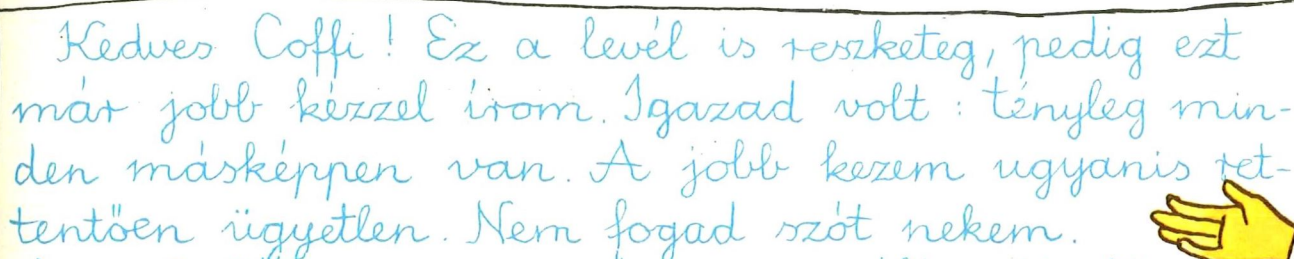 Kedves Coffi! Ez a levél is reszketeg, pedig ezt
már jobb kézzel írom. Igazad volt: tényleg min-
den másképpen van. A jobb kezem ugyanis ret-
tentően ügyetlen. Nem fogad szót nekem.